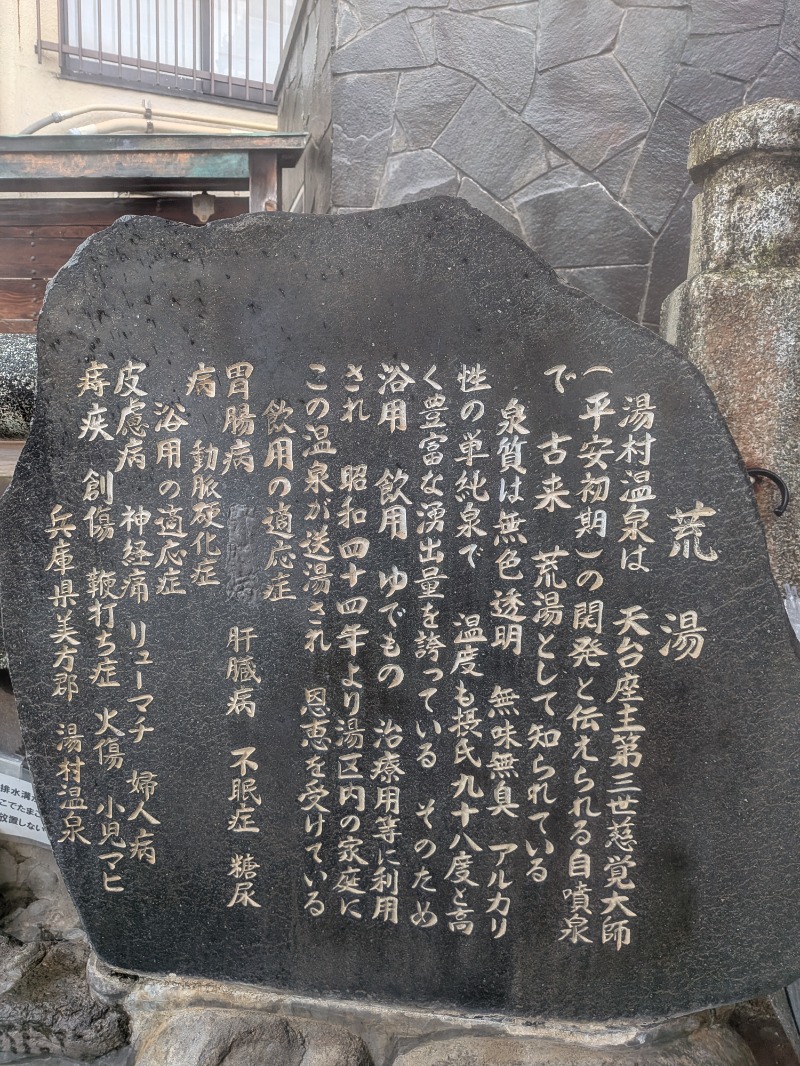 荒湯
湯村温泉は 天台座主第三世慈覚大師
(平安初期)の開発と伝えられる自噴泉
で 古来 荒湯として知られている
泉質は無色透明 無味無臭 アルカリ
性の単純泉で 温度も摂氏九十八度と高
く豊富な湧出量を誇っている そのため
浴用 飲用 ゆでもの 治療用等に利用
され 昭和四十四年より湯区内の家庭に
この温泉が送湯され 恩恵を受けている
飲用の適応症
胃腸病 肝臓病 不眠症 糖尿
病 動脈硬化症
浴用の適応症
皮慮病 神経痛 リューマチ 婦人病
痔疾 創傷 鞭打ち症 火傷 小児マヒ
兵庫県美方郡 湯村温泉
排水溝
こでたまご
放置しない